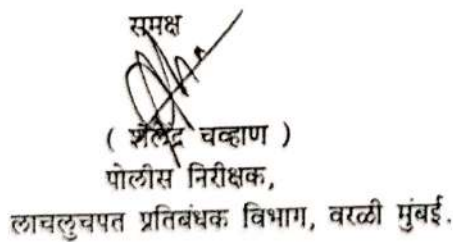 समक्ष
( शैलेंद्र चव्हाण )
पोलीस निरीक्षक,
लाचलुचपत प्रतिबंधक विभाग, वरळी मुंबई.